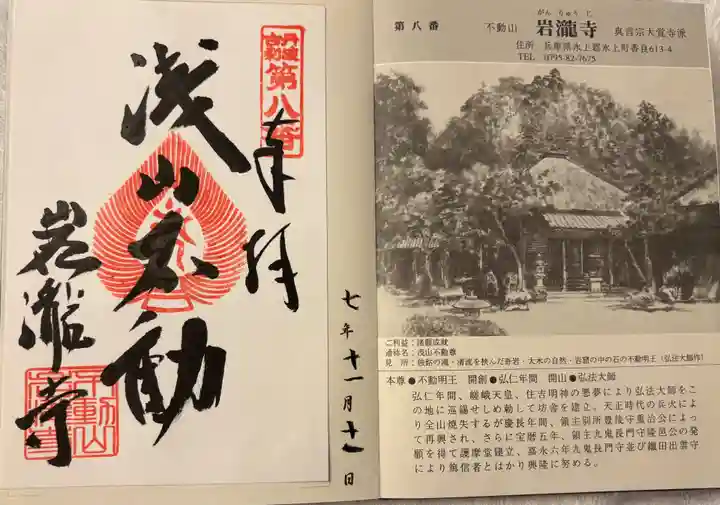 丹波
古刹
第八番
奉拝
浅山不動
岩瀧寺
七年十一月十一日
不動山
第八番 不動山 岩瀧寺 真言宗大覚寺派
がんりゅうじ
住所 兵庫県氷上郡氷上町香良613-4
TEL 0795-82-7675
ご利益:諸願成就
通称名:浅山不動尊
見 所:独鈷の滝・清流を挟んだ奇岩・大木の自然・岩窟の中の石の不動明王(弘法大師作)
本尊●不動明王 開創●弘仁年間 開山●弘法大師
弘仁年間、嵯峨天皇、住吉明神の悪夢により弘法大師をこ
の地に巡錫せしめ勅して坊舎を建立。天正時代の兵火によ
り全山焼失するが慶長年間、領主別所豊後守重治公によっ
て再興され、さらに宝暦五年、領主九鬼長門守隆邑公の発
願を得て護摩堂建立、嘉永六年九鬼長門守並び織田出雲守
により篤信者とはかり興隆に努める。